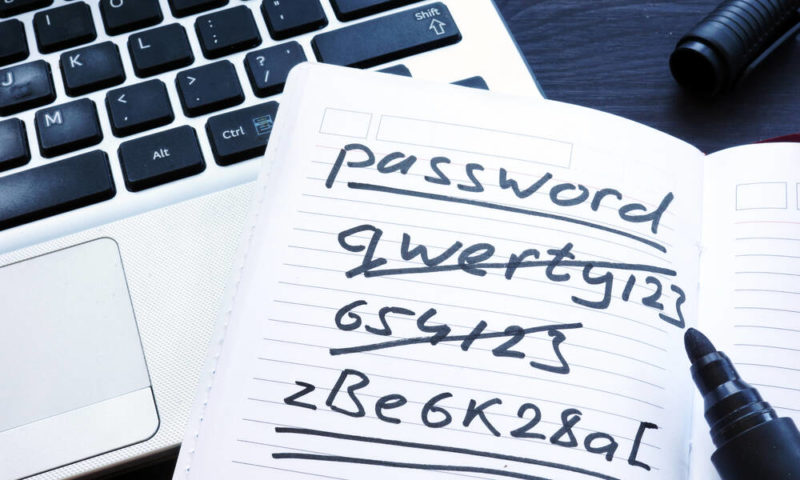 Shift
J K L : ;
? /
M < , > .
Alt Ctrl
password
qwerty123
654123
zBe6K28a[